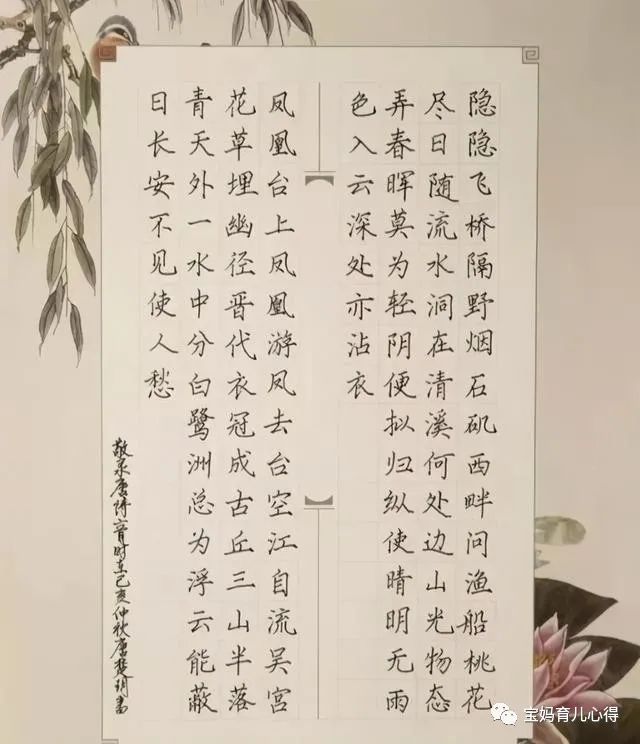 隐隐飞桥隔野烟石矶西畔问渔船桃花
尽日随流水洞在清溪何处边山光物态
弄春晖莫为轻阴便拟归纵使晴明无雨
色入云深处亦沾衣
凤凰台上凤凰游凤去台空江自流吴宫
花草埋幽径晋代衣冠成古丘三山半落
青天外一水中分白鹭洲总为浮云能蔽
日长安不见使人愁
敬录唐诗二首时在己亥仲秋唐楚玥书
宝妈育儿心得